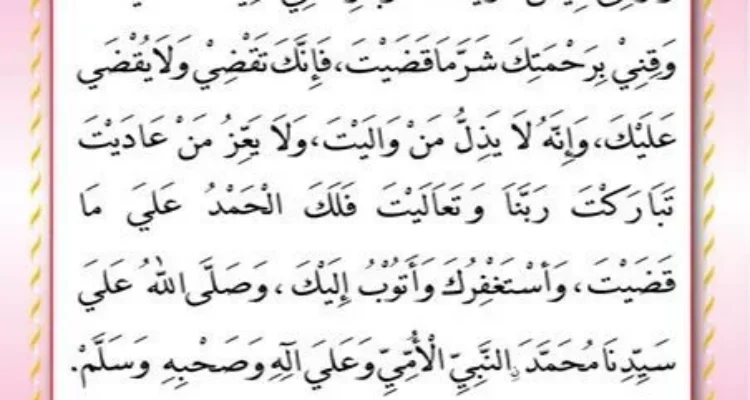 وَقِنِيْ بِرَحْمَتِكَ شَرَّمَا قَضَيْتَ، فَإِنَّكَ تَقْضِيْ وَلَا يُقْضَي
عَلَيْكَ، وَإِنَّهُ لَا يَذِلُّ مَنْ وَالَيْتَ، وَلَا يَعِزُّ مَنْ عَادَيْتَ
تَبَارَكْتَ رَبَّنَا وَتَعَالَيْتَ فَلَكَ الْحَمْدُ عَلَي مَا
قَضَيْتَ، وَأَسْتَغْفِرُكَ وَأَتُوْبُ إِلَيْكَ، وَصَلَّى اللهُ عَلَي
سَيِّدِنَا مُحَمَّدَ ࣙالنَّبِيِّ الْأُمِّيِّ وَعَلَي آلِهِ وَصَحْبِهِ وَسَلَّمْ.